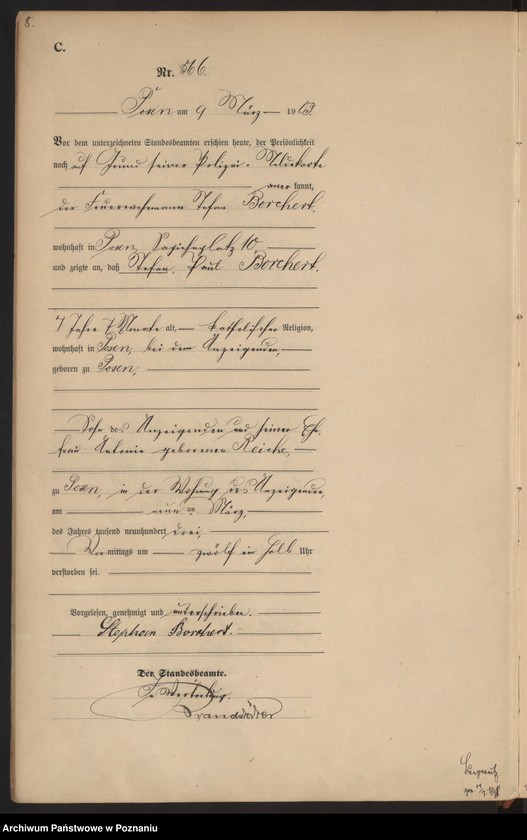 8.
C.
Nr. 566.
Posen am 9 März 1903.
Vor dem unterzeichneten Standesbeamten erschien heute, der Persönlichkeit
nach auf Grund seiner Polizei-Meldekarte
anerkannt,
der Feuerwehrmann Stefan Borchert,
wohnhaft in Posen, Sapiehaplatz 10
und zeigte an, daß Stefan, Paul Borchert,
7 Jahre 7 Monate alt, katholischer Religion,
wohnhaft in Posen, bei dem Anzeigenden,
geboren zu Posen,
Sohn des Anzeigenden und seiner Ehe-
frau Antonie geborenen Reiche,
zu Posen, in der Wohnung des Anzeigenden,
am neun ten März,
des Jahres tausend neunhundert drei,
Vormittags um zwölf ein halb Uhr
verstorben sei.
Vorgelesen, genehmigt und unterschrieben.
Stephan Borchert.
Der Standesbeamte.
In Vertretung.
Brandstädter
Archiwum Państwowe w Poznaniu